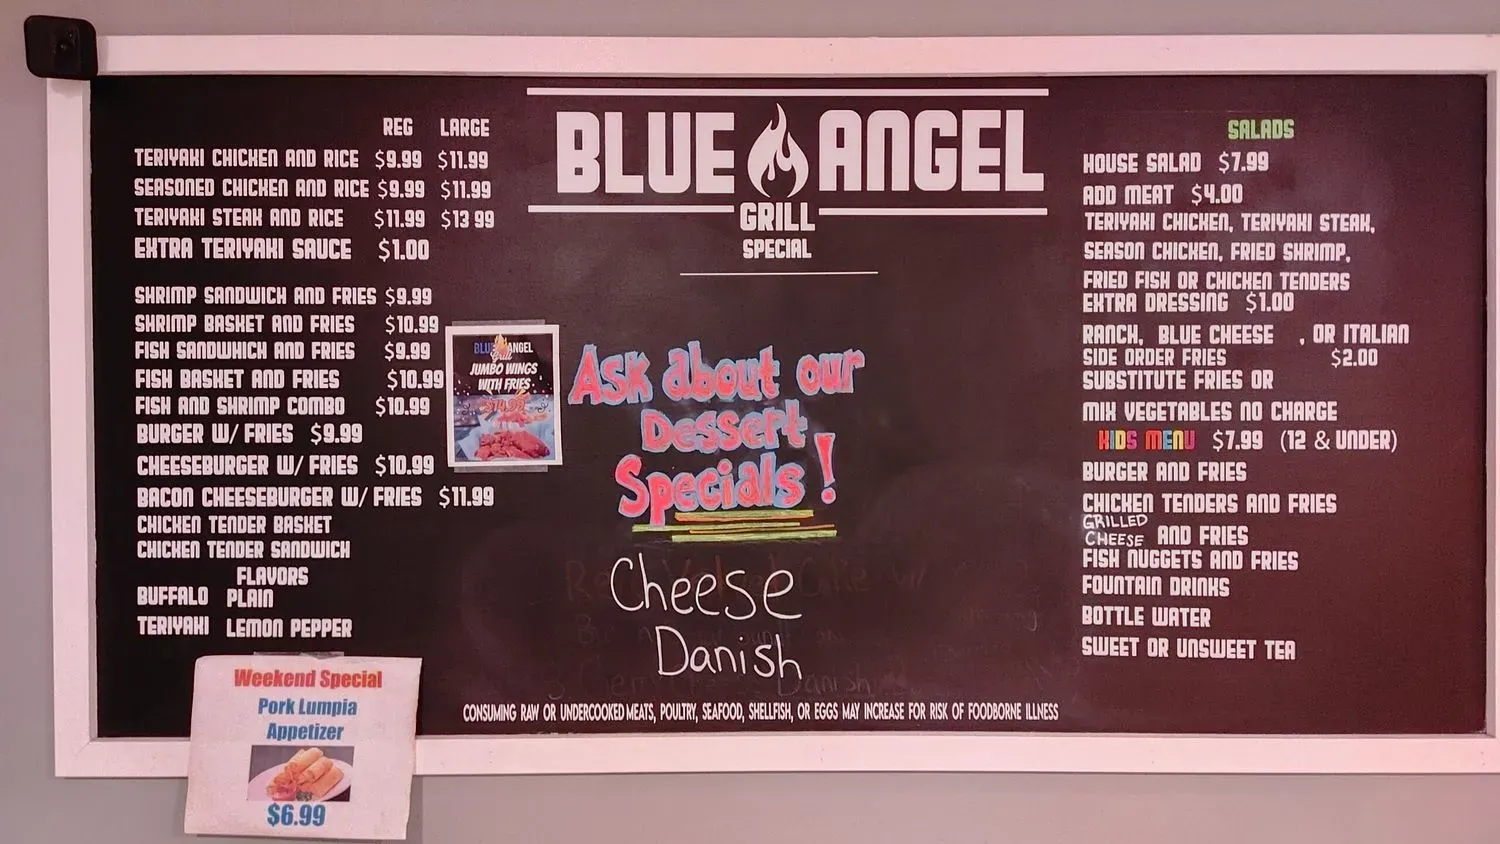 REG LARGE
TERIYAKI CHICKEN AND RICE $9.99 $11.99
SEASONED CHICKEN AND RICE $9.99 $11.99
TERIYAKI STEAK AND RICE $11.99 $13 99
EXTRA TERIYAKI SAUCE $1.00
SHRIMP SANDWICH AND FRIES $9.99
SHRIMP BASKET AND FRIES $10.99
FISH SANDWHICH AND FRIES $9.99
FISH BASKET AND FRIES $10.99
FISH AND SHRIMP COMBO $10.99
BURGER W/ FRIES $9.99
CHEESEBURGER W/ FRIES $10.99
BACON CHEESEBURGER W/ FRIES $11.99
CHICKEN TENDER BASKET
CHICKEN TENDER SANDWICH
FLAVORS
BUFFALO PLAIN
TERIYAKI LEMON PEPPER
Weekend Special
Pork Lumpia
Appetizer
$6.99
BLUE ANGEL
Grill
JUMBO WINGS
WITH FRIES
$14.99
BLUE ANGEL
GRILL
SPECIAL
Ask about our
Dessert
Specials!
Cheese
Danish
CONSUMING RAW OR UNDERCOOKED MEATS, POULTRY, SEAFOOD, SHELLFISH, OR EGGS MAY INCREASE FOR RISK OF FOODBORNE ILLNESS
SALADS
HOUSE SALAD $7.99
ADD MEAT $4.00
TERIYAKI CHICKEN, TERIYAKI STEAK,
SEASON CHICKEN, FRIED SHRIMP,
FRIED FISH OR CHICKEN TENDERS
EXTRA DRESSING $1.00
RANCH, BLUE CHEESE , OR ITALIAN
SIDE ORDER FRIES $2.00
SUBSTITUTE FRIES OR
MIX VEGETABLES NO CHARGE
KIDS MENU $7.99 (12 & UNDER)
BURGER AND FRIES
CHICKEN TENDERS AND FRIES
GRILLED
CHEESE AND FRIES
FISH NUGGETS AND FRIES
FOUNTAIN DRINKS
BOTTLE WATER
SWEET OR UNSWEET TEA